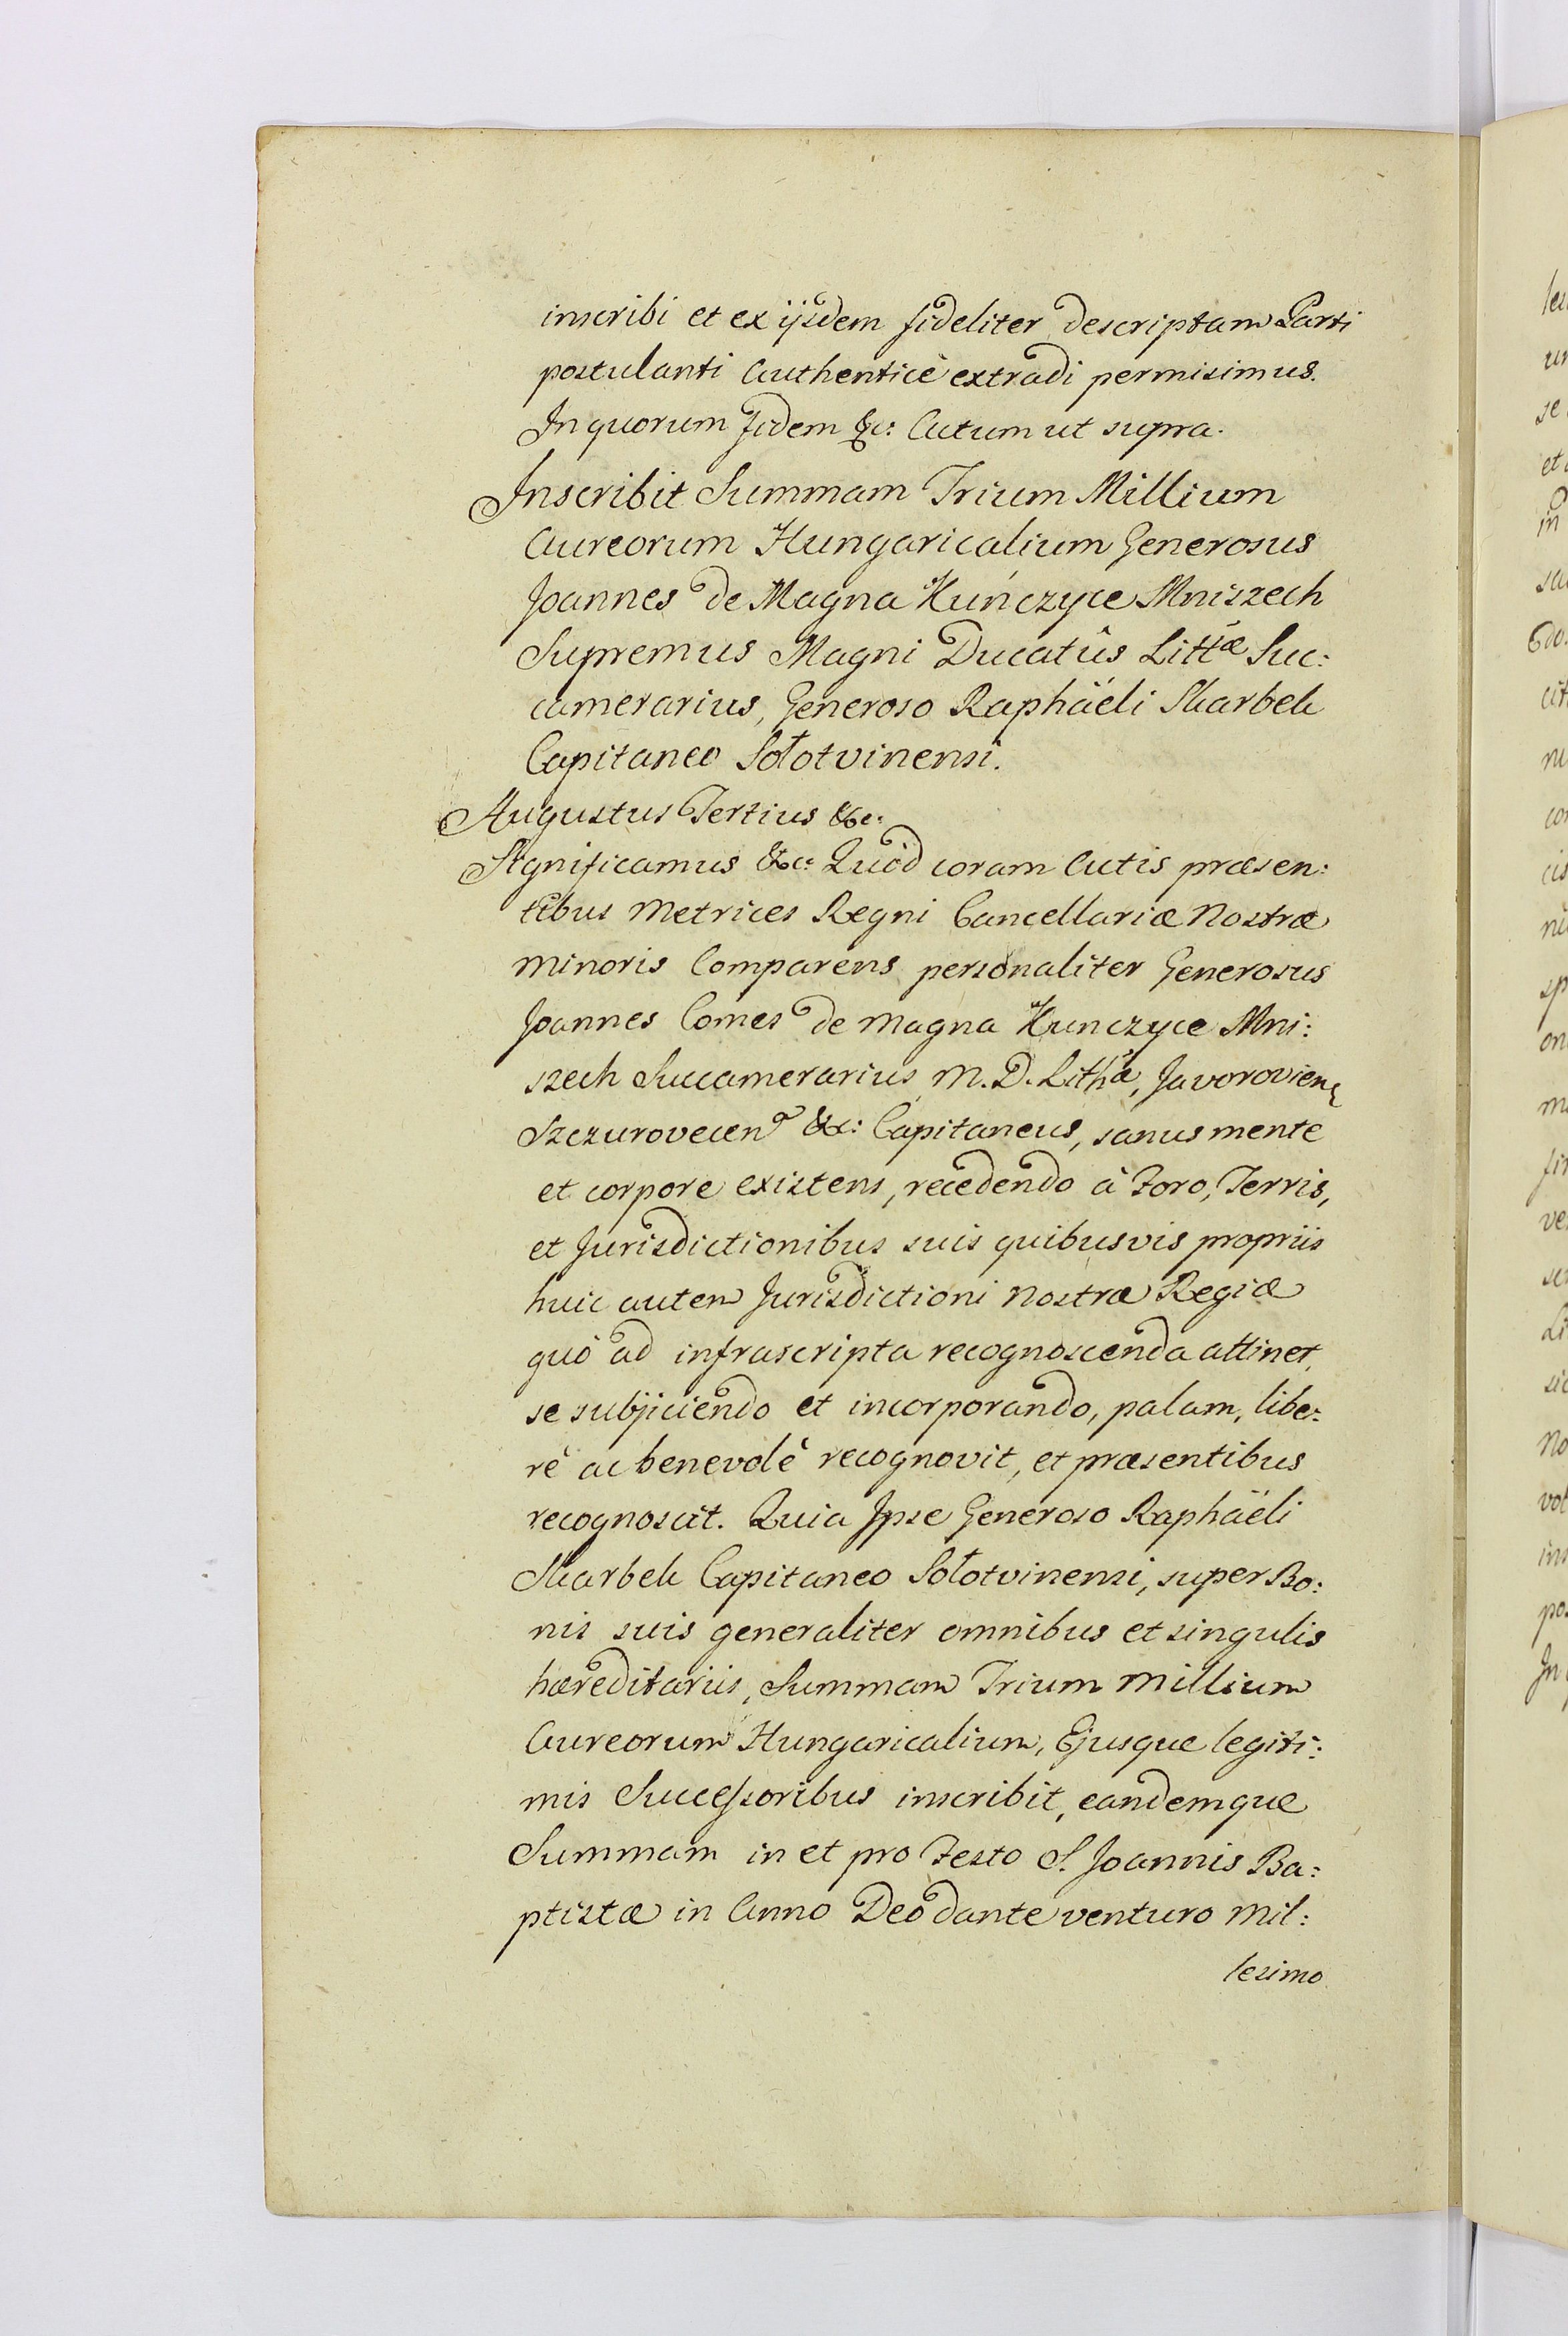 inscribi et ex ijsdem fideliter descriptam Parti
postulanti Authenticè extradi permisimus.
In quorum fidem &c: Actum ut supra.
Inscribit Summam Trium Millium
Aureorum Hungaricalium Generosus
Joannes de Magna Kunczyce Mniszech
Supremus Magni Ducatûs Littæ Suc:
camerarius, Generoso Raphäeli Skarbek
Capitaneo Sołotvinensi.
Augustus Tertius &c:
Significamus &c: Quòd coram Actis præsen:
tibus Metrices Regni Cancellariæ Nostræ
Minoris Comparens personaliter Generosus
Joannes Comes de Magna Kunczyce Mni:
szech Succamerarius M. D. Lithæ, Javorovien
Szczurovecen &c: Capitaneus, sanus mente
et corpore existens, recedendo à Foro, Terris,
et Jurisdictionibus suis quibusvis propriis
huic autem Jurisdictioni Nostræ Regiæ
quò ad infrascripta recognoscenda attinet,
se subjiciendo et incorporando, palam, libe:
rè ac benevolè recognovit, et præsentibus
recognoscit. Quia Ipse Generoso Raphäeli
Skarbek Capitaneo Sołotvinensi, super Bo:
nis suis generaliter omnibus et singulis
hæreditariis, Summam Trium Millium
Aureorum Hungaricalium, Ejusque legiti:
mis Successoribus inscribit, eandemque
Summam in et pro Festo S. Joannis Ba:
ptistæ in Anno Deo dante venturo Mil:
lesimo